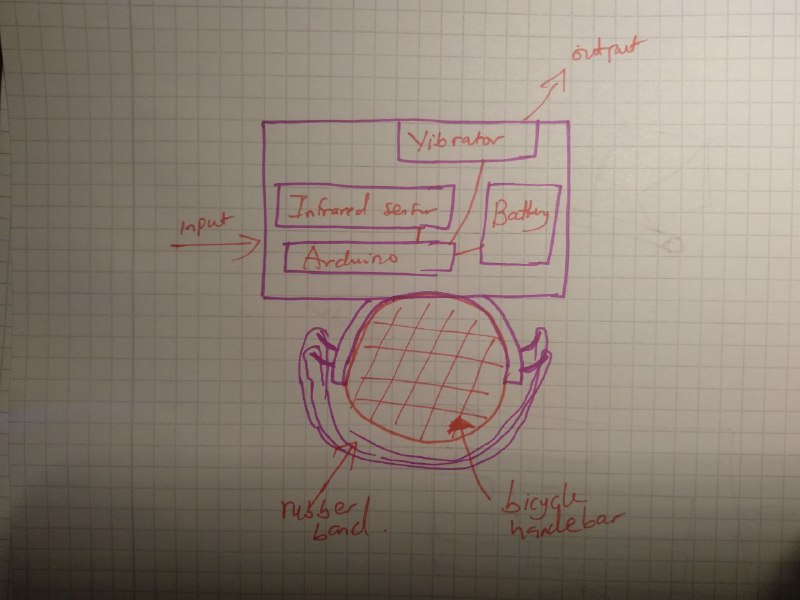 output
Vibrator
Infrared sensor
Battery
input
Arduino
rubber
band.
bicycle
handlebar